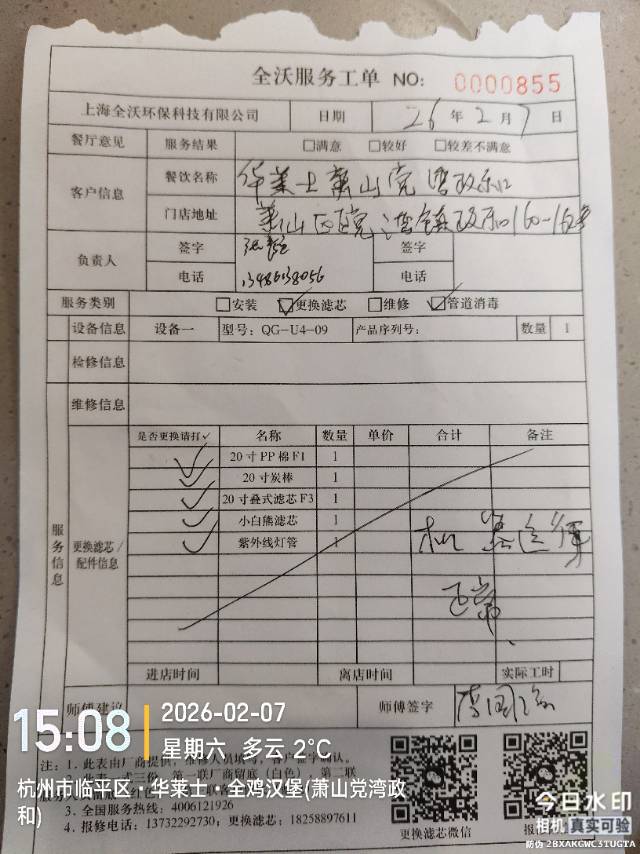 全沃服务工单 NO: 0000855
上海全沃环保科技有限公司 日期 26年2月7日
餐厅意见 服务结果 □满意 □较好 □较差不满意
客户信息 餐饮名称 华莱士萧山党湾政和
门店地址 萧山区党湾镇政和160-16
负责人 签字 签字
电话 电话
服务类别 □安装 ☑更换滤芯 □维修 ☑管道消毒
设备信息 设备一 型号: QG-U4-09 产品序列号: 数量 1
检修信息
维修信息
服务信息
更换滤芯/配件信息
是否更换请打✓ 名称 数量 单价 合计 备注
✓ 20寸PP棉F1 1
✓ 20寸炭棒 1
✓ 20寸叠式滤芯F3 1
✓ 小白熊滤芯 1
✓ 紫外线灯管 1
机器运行
正常
进店时间 离店时间 实际工时
师傅建议 师傅签字
15:08
2026-02-07
星期六 多云 2°C
杭州市临平区·华莱士·全鸡汉堡(萧山党湾政和)
注: 1. 此表由厂商提供
3. 全国服务热线: 4006121926
4. 报修电话: 13732292730; 更换滤芯: 18258897611
更换滤芯微信
今日水印
相机 真实可验
防伪 2BXAKGWC3TUGTA